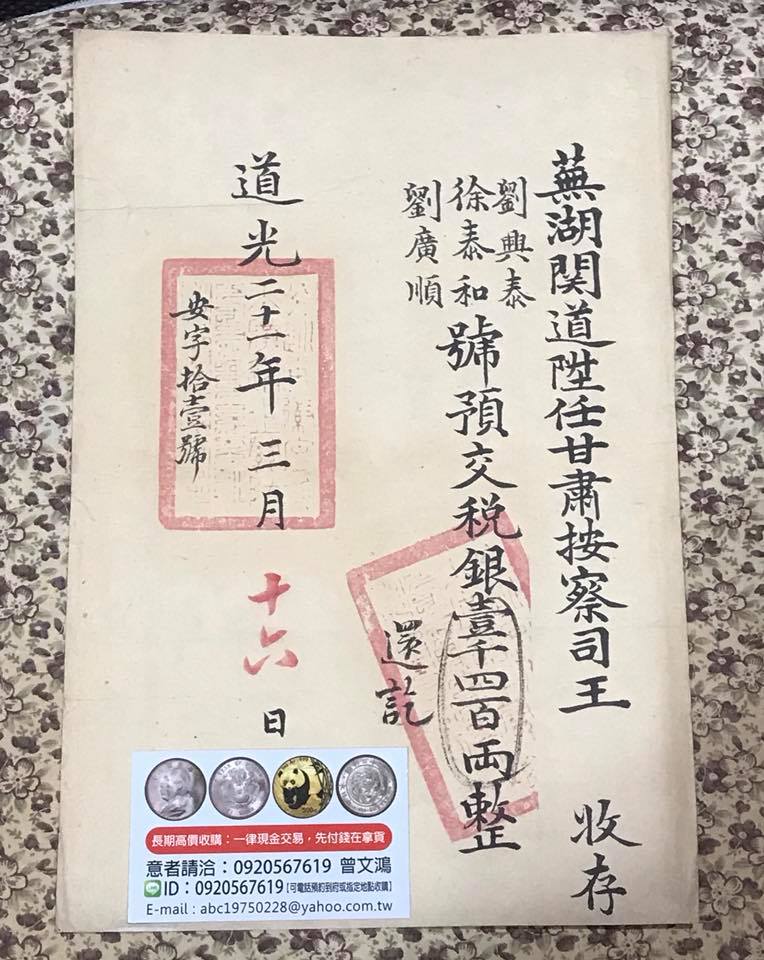 蕪湖関道陞任甘肅按察司王 收存
劉興泰
徐泰和
劉廣順
號預交税銀壹千四百両整
還訖
道光二十一年三月十六日
安字拾壹號
長期高價收購：一律現金交易，先付錢在拿貨
意者請洽：0920567619 曾文鴻
LINE ID：0920567619【可電話預約到府或指定地點收購】
E-mail : abc19750228@yahoo.com.tw